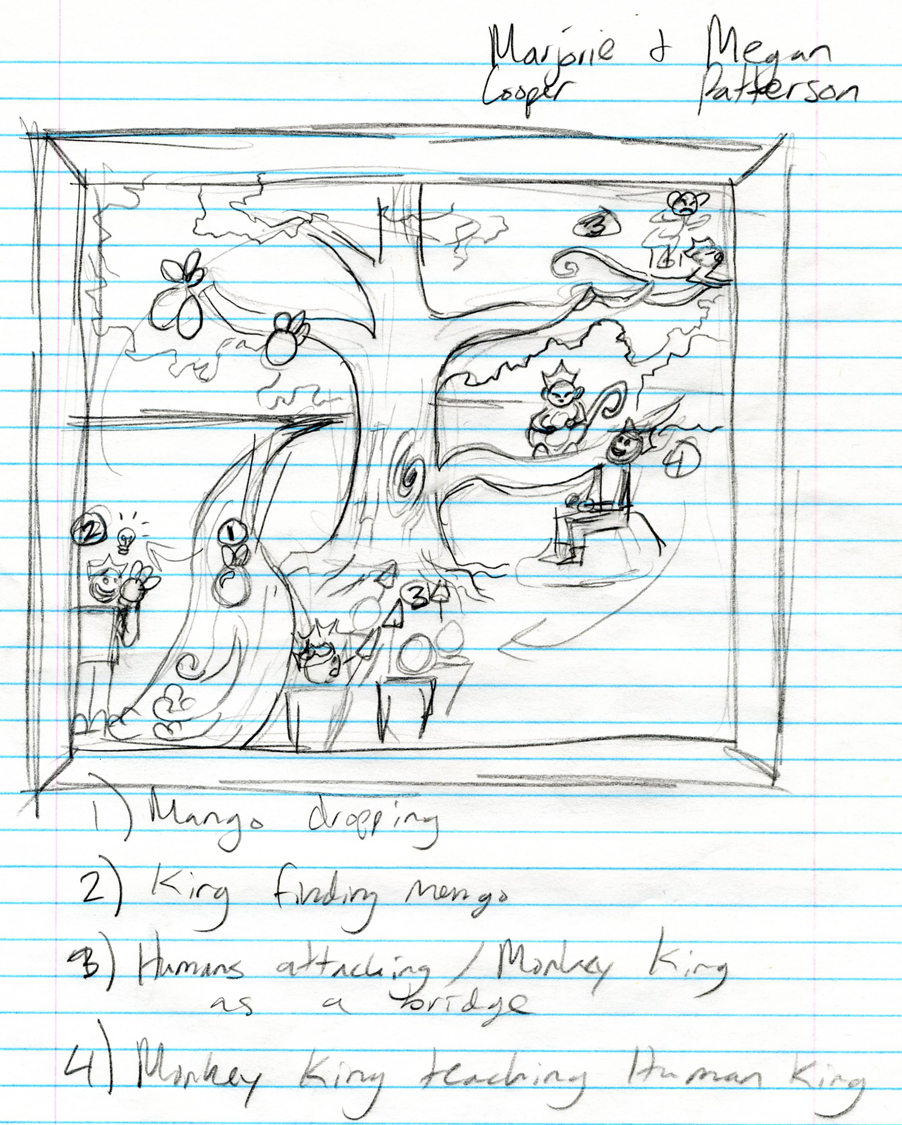 Marjorie & Megan
Cooper Patterson
3
2
1
3
4
1) Mango dropping
2) King finding mango
3) Humans attacking / Monkey King
as a bridge
4) Monkey King teaching Human King